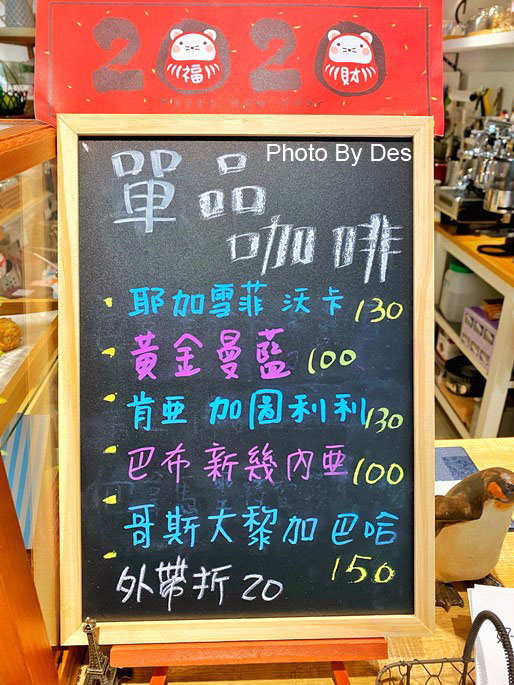 2020
福 財
Photo By Des
單品
咖啡
耶加雪菲 沃卡 130
黃金曼藍 100
肯亞 加圖利利 130
巴布新幾內亞 100
哥斯大黎加 巴哈
150
外帶折 20